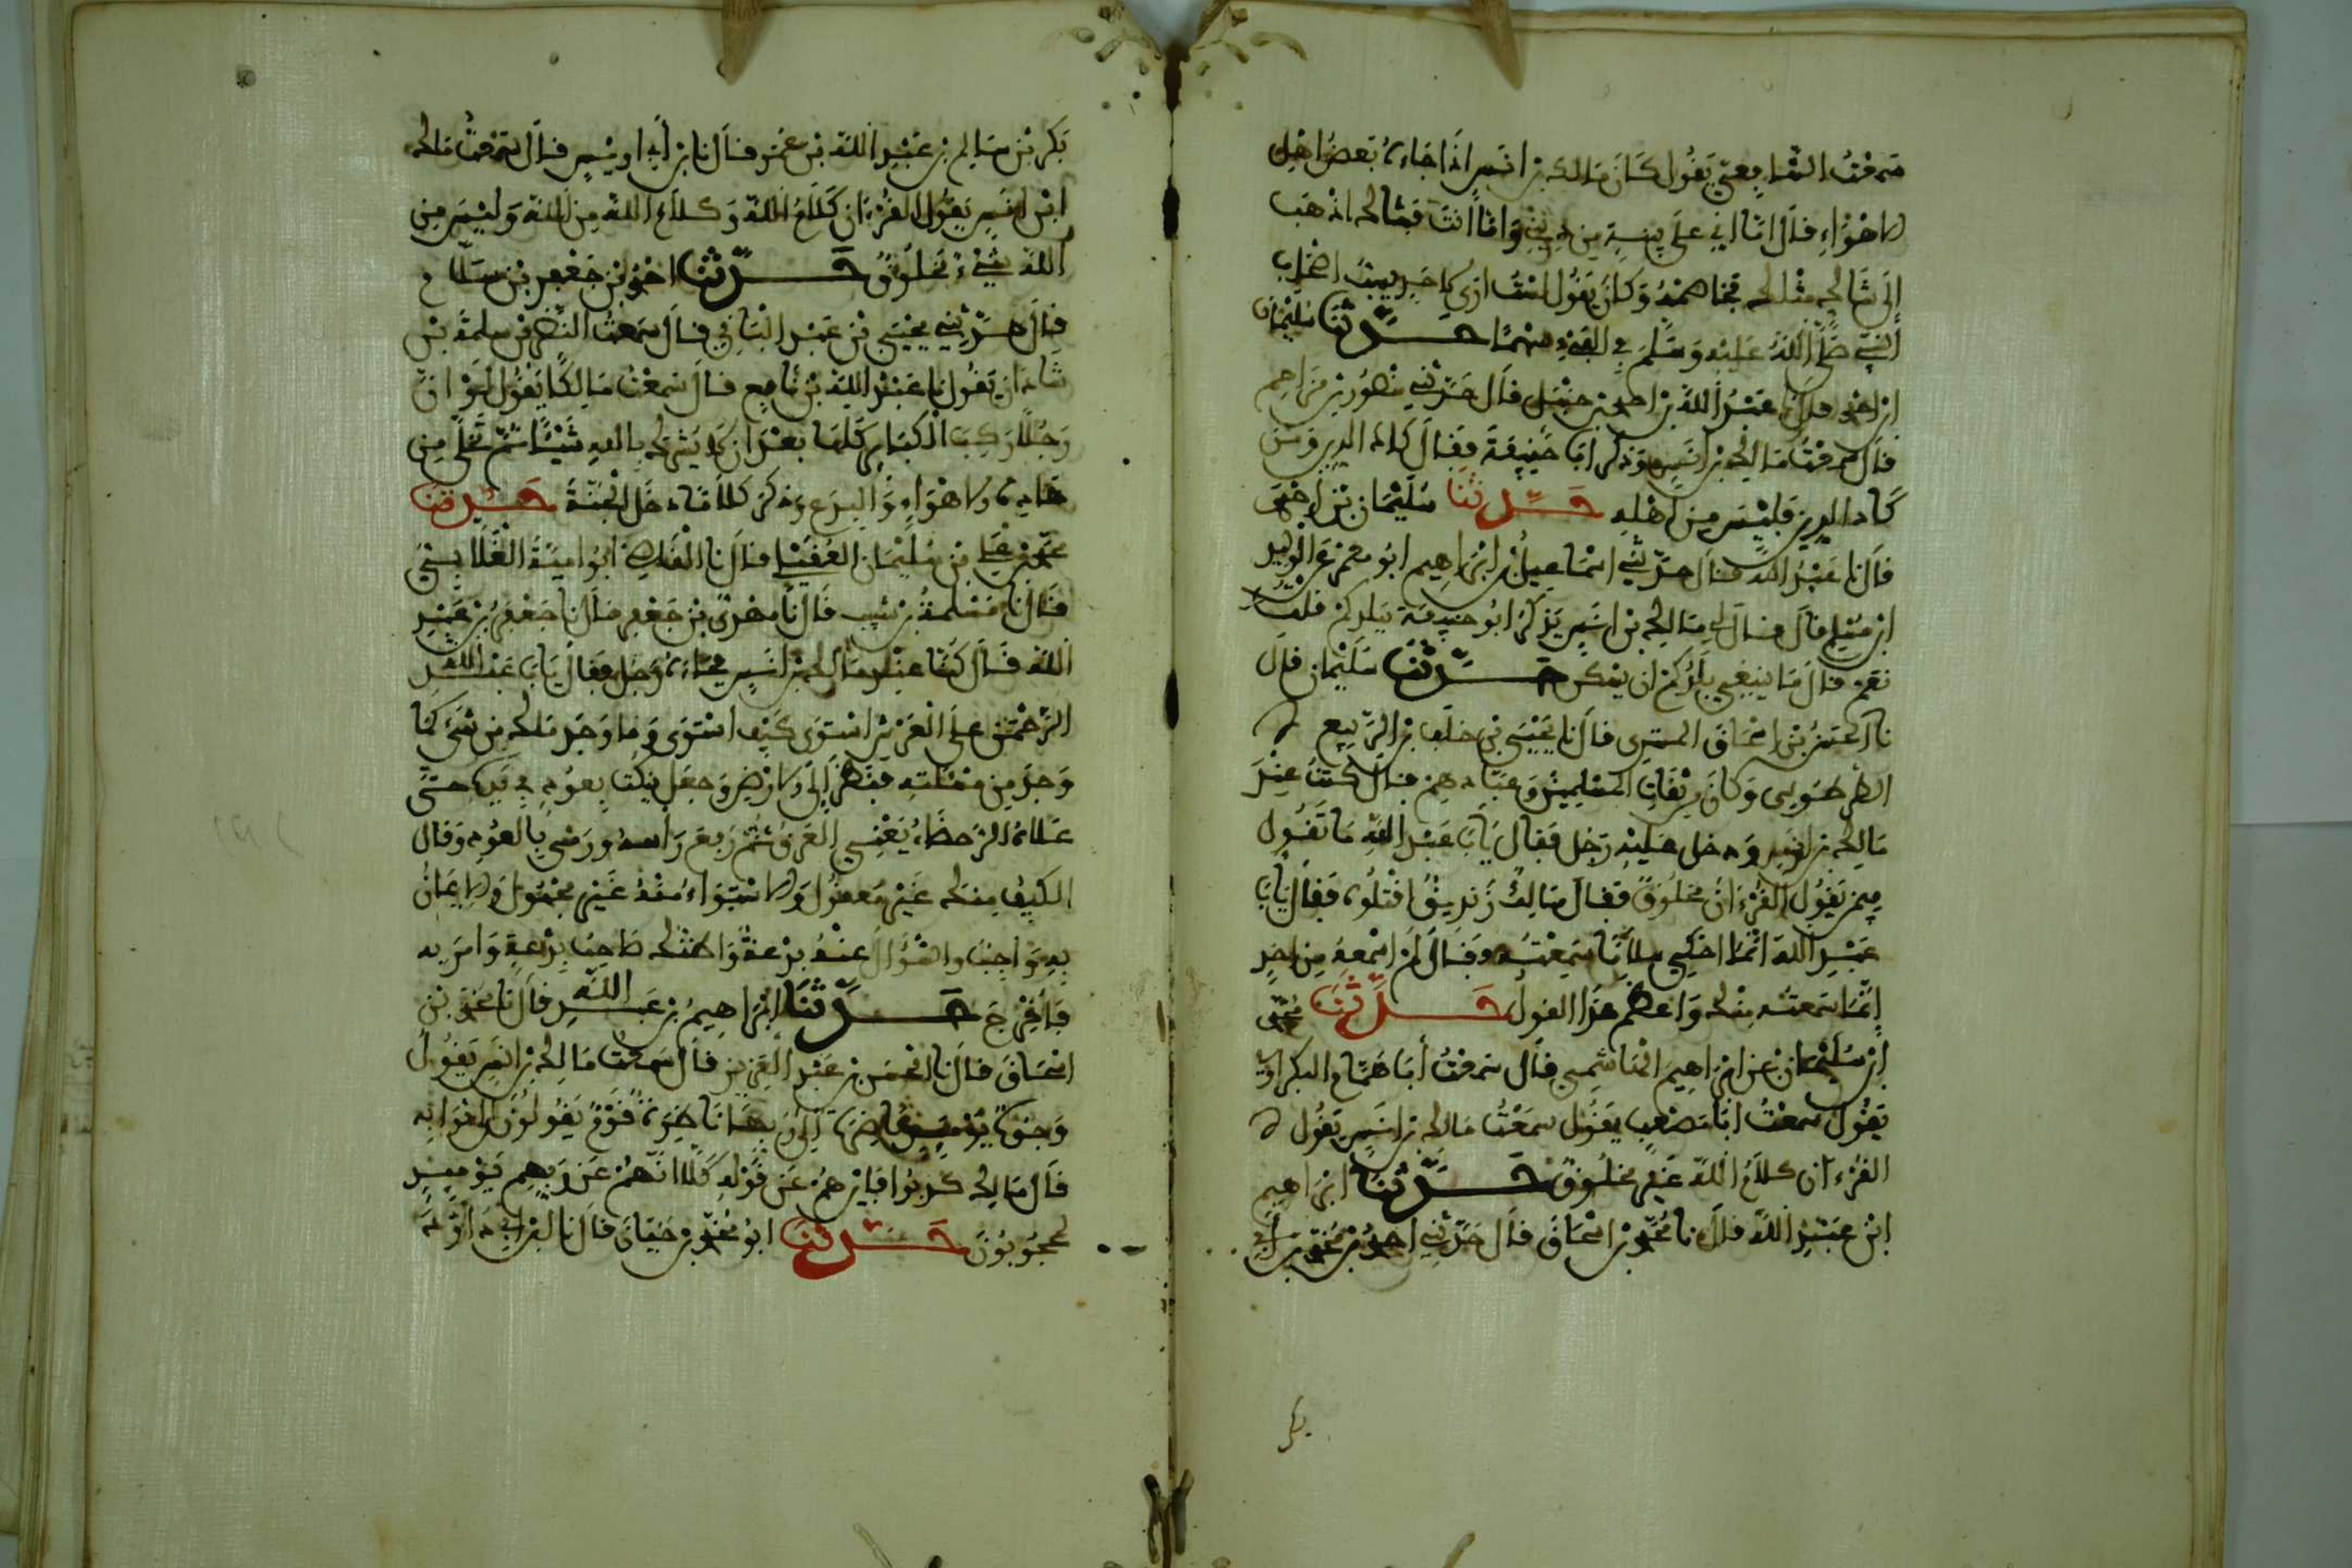 سَمعْتُ الشَّافِعِيّ يَقُول كَانَ مَالك بن انَسٍ اذا جَاءَهُ بَعضُ اهْل
الاهْوَاءِ قال امَّا انِي عَلَى بينةٍ مِن دِينِي وَامَّا انتَ فشَاك اذْهَب
الَى شَاكٍّ مثْلك فخاصمْهُ وَكانَ يَقُول لسْتُ ارَى لاحَدٍ يسُبُّ اصْحَاب
النَّبِي صَلَّى اللهُ عَليْه وَسَلَّمَ فِي الفَيْءِ سَهْمًا حَدَّثنَا سُلَيْمَان
ابن احمد قال نا عَبْدُ اللهِ بن احمد بن حنبل قال حَدّثنِي منصُور بن مزَاحِم
قال سَمعْتُ مَالك بن انَسٍ وَذكر ابَا حَنِيفَةَ فَقَالَ كَادَ الدين وَمَن
كَادَ الدين فَليْسَ مِن اهْلهِ حَدّثَنَا سُلَيْمَان بْن احْمَد
قال نا عَبْدُ الله قال حدّثنِي اسْمَاعِيلُ بن ابْرَاهِيم ابُو معْمَر عَن الْوَلِيد
ابن مُسْلِم قال قال لي مَالِك بن انَسٍ يَذكُرُ ابُو حنِيفَة بِبَلدكمْ قلتُ
نعَمْ قال مَا ينبَغِي بِبَلَدِكمْ ان يُسْكن حَدَّثنَا سُلَيْمَان قال
نا الحسَنُ بْن اسْحَاقَ التستري قال نا يَحْيَى بْن خلَف بن الرَّبِيع
الطَّرطوسي وَكانَ من ثقَاتِ الْمُسْلِمِينَ وَعبَّادهِمْ قال كُنتُ عنْدَ
مَالِك بن انَسٍ ودخل عَليْهِ رَجُل فَقال يَابَا عَبْد اللهِ مَا تَقُول
فِيمَن يَقُول القُرْءَانُ مَخلُوقٌ فَقَال مَالِكٌ زَنْدِيقٌ اقْتُلُوهُ فَقال يَابَا
عَبْدِ اللهِ انَّمَا احْكِي كلامًا سَمِعْتُه فَقال لَمْ اسْمَعْهُ مِن احَدٍ
اِنَّمَا سَمعتُه مِنْك وَاعظَم هَذَا القول حَدَّثنَا مُحَمّد
ابن عَبْدِ اللهِ قال نا مُحَمَّد بن اسْحَاق قال حَدَّثنِي احمد بن مُحَمّد بن ابي
بكر
بَكر بْن سَالِم بن عَبْدِ اللهِ بْن عمَر قال نا بن أبي اوَيْسٍ قال سَمعْتُ مَالك
ابْن انَسٍ يَقُول القُرْءَانُ كلَامُ اللهِ وَكلامُ اللهِ مِن اللهِ وَليْسَ مِن
اللهِ شَيْءٌ مَخْلُوقٌ حَدَّثنَا احْمَد بْن جَعْفَر بْن سَلام
قال حدّثنِي يَحْيَى بْن عَبْد الْبَاقِي قال سَمعتُ النَّضر بْن سلمة بْن
شَاذان يَقُول نا عَبْدُ اللهِ بْن نَافِع قال سَمعْتُ مَالِكًا يَقُول لَوْ انَّ
رَجُلا رَكِبَ الْكَبَايِرَ كلهَا بعْدَ ان لا يَشْرِك بِاللهِ شَيْئًا ثُمَّ تَخلى مِن
هَاذِه الاهْوَاءِ وَالبِدَع وَذكَرَ كلامًا دَخَل الْجَنَّةَ حَدّثنَا
مُحَمّد بن عَلِي بْن مُسْلِم العُقَيْلِي قال نا الْقَاضِي ابُو اميَّة الغَلابي
قَال نا سَلمةُ بن شبِيب قال نا مهْدِي بْن جَعْفَر قال نا جَعْفَرُ بن عَبْدِ
اللهِ قال كُنَّا عِنْدَ مَالِك بن انَسٍ فجَاءَهُ رَجُل فَقال يَابَا عَبْدِ اللهِ
الرَّحْمَنُ عَلَى الْعَرْشِ اسْتَوَى كَيْفَ اسْتَوَى فَما وَجَدَ مَالك مِن شَيْءٍ مَا
وَجدَ مِن مَسْئلتِهِ فنَظَرَ اِلَى الارْضِ وَجعَل ينْكُت بِعُودٍ فِي يَدِهِ حَتَّى
عَلاهُ الرُّحَضَاءُ يَعْنِي العَرَقَ ثُمَّ رَفَعَ رَاسَهُ وَرَمَى بِالعُودِ وَقال
الكَيْفُ مِنهُ غَيْر مَعقول وَالاسْتِوَاءُ مِنْهُ غَيْر مَجْهُول وَالايمَانُ
بِهِ وَاجِبٌ وَالسُّؤَالُ عنْهُ بدْعةٌ وَاظنُّك صَاحِبَ بِدْعةٍ وَامَرَ به
فَأُخْرِجَ حَدَّثنَا ابْرَاهِيمُ بن عَبْد اللهِ قال نا مُحَمَّد بْن
اسْحَاق قال نا الحسَن بن عَبْد الْعَزِيز قال سَمعْتُ مَالِك بن انَسٍ يَقُولُ
وُجُوهٌ يَوْمَئِذٍ نَاضِرَةٌ اِلَى رَبِّهَا نَاظِرَةٌ قَوْمٌ يَقُولُونَ الَى ثَوَابِه
قال مَالِك كذبُوا فَاينَ هُمْ عَن قَوْلِهِ كَلَّا اِنَّهُمْ عَن رَبِّهِم يَوْمَئِذٍ
لَمَحْجُوبُونَ حَدّثنَا ابُو مُحَمّد بن حَيَّان قال نا بن ابِي دَاوُدَ